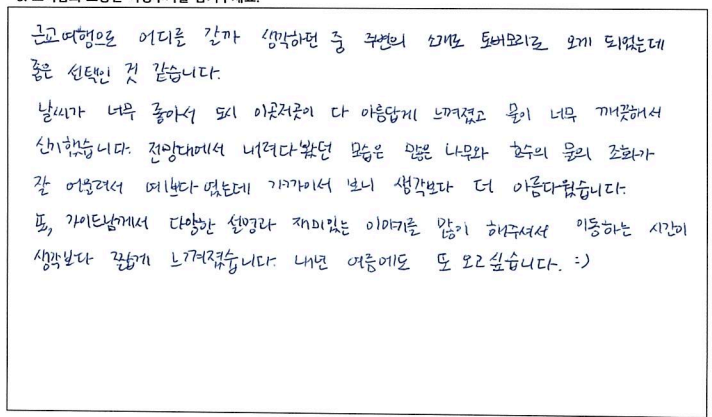 근교여행으로 어디를 갈까 생각하던 중 주변의 소개로 토버모리로 오게 되었는데
좋은 선택인 것 같습니다.
날씨가 너무 좋아서 도시 이곳저곳이 다 아름답게 느껴졌고 물이 너무 깨끗해서
신기했습니다. 전망대에서 내려다 봤던 모습은 많은 나무와 호수의 물의 조화가
잘 어울려서 예쁘다 였는데 가까이서 보니 생각보다 더 아름다웠습니다.
또, 가이드님께서 다양한 설명과 재미있는 이야기를 많이 해주셔서 이동하는 시간이
생각보다 짧게 느껴졌습니다. 내년 여름에도 또 오고싶습니다. :)